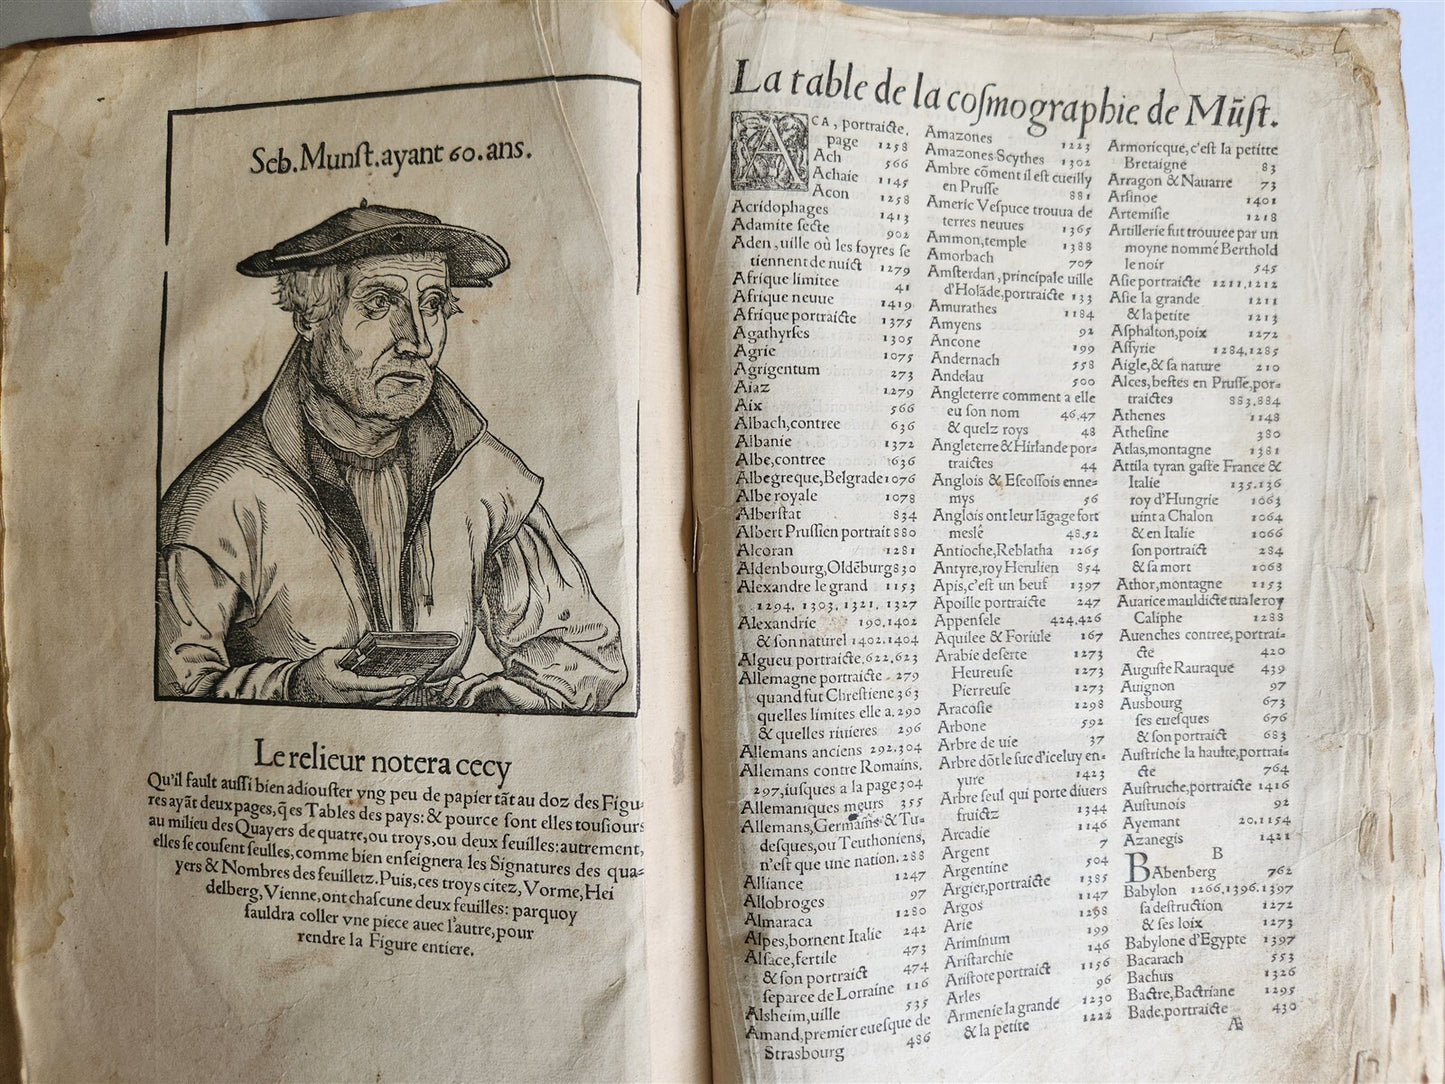 Seb. Munſt. ayant 60. ans.
Le relieur notera cecy
Qu'il fault auſſi bien adiouſter vng peu de papier tāt au doz des Figu-
res ayāt deux pages, q̃ es Tables des pays: & pource ſont elles touſiours
au milieu des Quayers de quatre, ou troys, ou deux feuilles: autrement,
elles ſe couſent ſeulles, comme bien enſeignera les Signatures des qua-
yers & Nombres des feuilletz. Puis, ces troys citez, Vorme, Hei
delberg, Vienne, ont chaſcune deux feuilles: parquoy
fauldra coller vne piece auec l'autre, pour
rendre la Figure entiere.
La table de la coſmographie de Mūſt.
ACA, portraicte,
page 1258
Ach 566
Achaie 1145
Acon 1258
Acridophages 1413
Adamite ſecte 902
Aden, uille où les foyres ſe
tiennent de nuict 1279
Afrique limitee 41
Afrique neuue 1419
Afrique portraicte 1375
Agathyrſes 1305
Agrie 1075
Agrigentum 273
Aiaz 1279
Aix 566
Albach, contree 636
Albanie 1372
Albe, contree 636
Albegreque, Belgrade 1076
Albe royale 1078
Alberſtat 834
Albert Pruſſien portrait 880
Alcoran 1281
Aldenbourg, Oldēburg 830
Alexandre le grand 1153
1294. 1303. 1321. 1327
Alexandrie 190.1402
& ſon naturel 1402.1404
Algueu portraicte. 622.623
Allemagne portraicte 279
quand fut Chreſtiene 363
quelles limites elle a. 290
& quelles riuieres 296
Allemans anciens 292.304
Allemans contre Romains.
297, iuſques a la page 304
Allemaniques meurs 355
Allemans, Germains & Tu-
deſques, ou Teuthoniens,
n'eſt que une nation. 288
Alliance 1247
Allobroges 97
Almaraca 1280
Alpes, bornent Italie 242
Alſace, fertile 473
& ſon portraict 474
ſeparee de Lorraine 116
Alsheim, uille 535
Amand, premier eueſque de
Strasbourg 486
Amazones 1223
Amazones Scythes 1302
Ambre cōment il eſt cueilly
en Pruſſe 881
Americ Veſpuce trouua de
terres neuues 1365
Ammon, temple 1388
Amorbach 707
Amſterdan, principale uille
d'Holāde, portraicte 133
Amurathes 1184
Amyens 92
Ancone 199
Andernach 558
Andelau 500
Angleterre comment a elle
eu ſon nom 46.47
& quelz roys 48
Angleterre & Hirlande por-
traictes 44
Anglois & Eſcoſſois enne-
mys 56
Anglois ont leur lāgage fort
meslé 48.52
Antioche, Reblatha 1265
Antyre, roy Herulien 854
Apis, c'eſt un beuf 1397
Apoille portraicte 247
Appenſele 424.426
Aquilee & Foriule 167
Arabie deſerte 1273
Heureuſe 1273
Pierreuſe 1273
Aracoſie 1298
Arbone 592
Arbre de uie 37
Arbre dōt le ſuc d'iceluy en-
yure 1423
Arbre ſeul qui porte diuers
fruictz 1344
Arcadie 1146
Argent 7
Argentine 504
Argier, portraicte 1385
Argos 1147
Arie 1298
Ariminum 199
Ariſtarchie 146
Ariſtote portraict 1156
Arles 96
Armenie la grande 1230
& la petite 1222
Armoricque, c'eſt la petitte
Bretaigne 83
Arragon & Nauarre 73
Arſinoe 1401
Artemiſie 1218
Artillerie fut trouuee par un
moyne nommé Berthold
le noir 545
Aſie portraicte 1211.1212
Aſie la grande 1211
& la petite 1213
Aſphalton, poix 1272
Aſſyrie 1284.1285
Aigle, & ſa nature 210
Alces, beſtes en Pruſſe, por-
traictes 883.884
Athenes 1148
Atheſine 380
Atlas, montagne 1381
Attila tyran gaſte France &
Italie 135.136
roy d'Hungrie 1063
uint a Chalon 1064
& en Italie 1066
ſon portraict 284
& ſa mort 1068
Athor, montagne 1153
Auarice mauldicte tua le roy
Caliphe 1288
Auenches contree, portrai-
cte 420
Auguſte Rauraque 439
Auignon 97
Ausbourg 673
ſes eueſques 676
& ſon portraict 683
Auſtriche la haulte, portrai-
cte 764
Auſtruche, portraicte 1416
Auſtunois 92
Ayemant 20.1154
Azanegis 1421
B
BAbenberg 762
Babylon 1266.1396.1397
ſa deſtruction 1272
& ſes loix 1273
Babylone d'Egypte 1397
Bacarach 553
Bachus 1326
Bactre, Bactriane 1295
Bade, portraicte 430